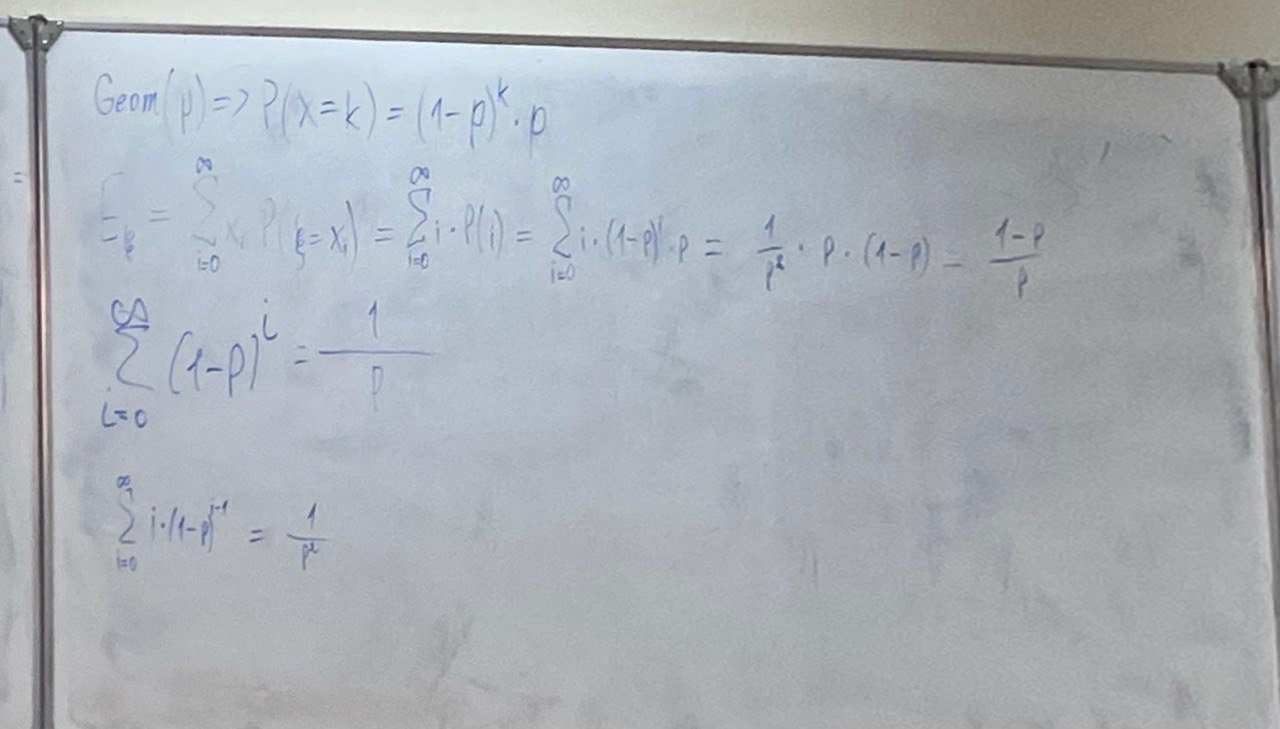 Geom(p) => P(x=k) = (1-p)^k · p
E_ξ = ∑_{i=0}^{∞} x_i P(ξ=x_i) = ∑_{i=0}^{∞} i · P(i) = ∑_{i=0}^{∞} i · (1-p)^i · p = 1/p² · p · (1-p) = (1-p)/p
∑_{i=0}^{∞} (1-p)^i = 1/p
∑_{i=0}^{∞} i · (1-p)^{i-1} = 1/p²